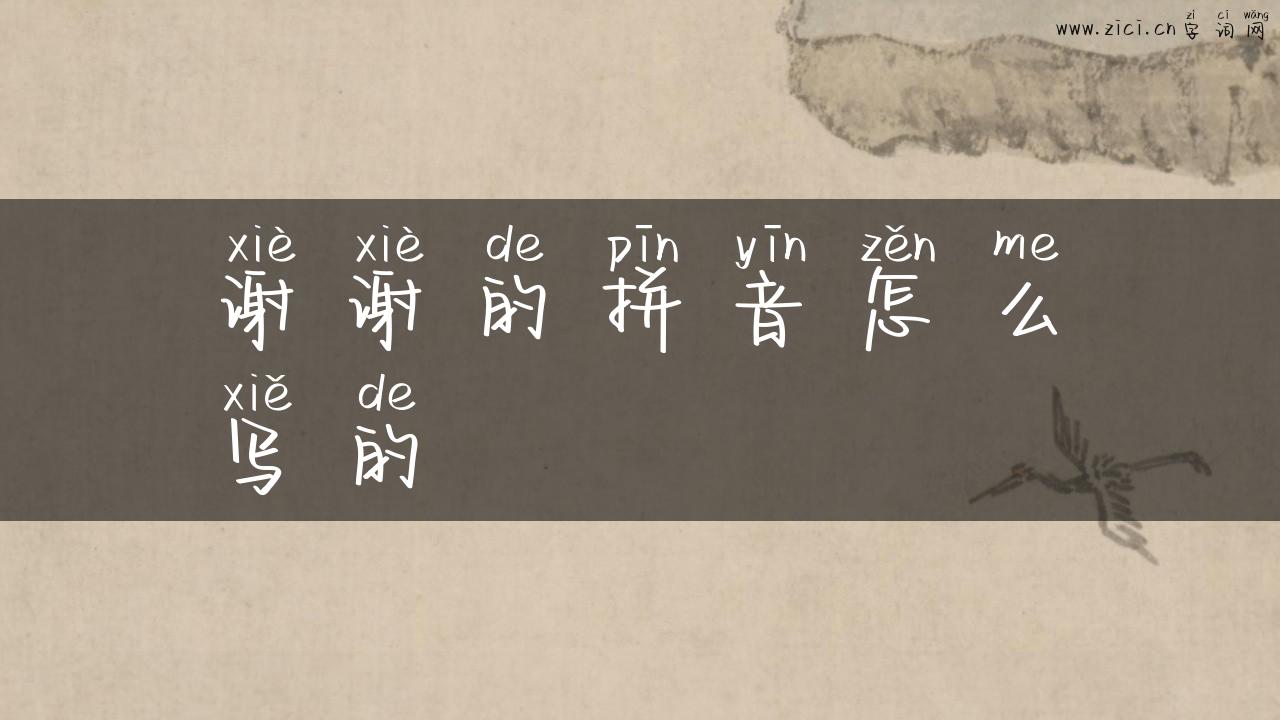 zì cí wǎng
www.zici.cn 字词网
xiè xiè de pīn yīn zěn me
谢谢的拼音怎么
xiě de
写的